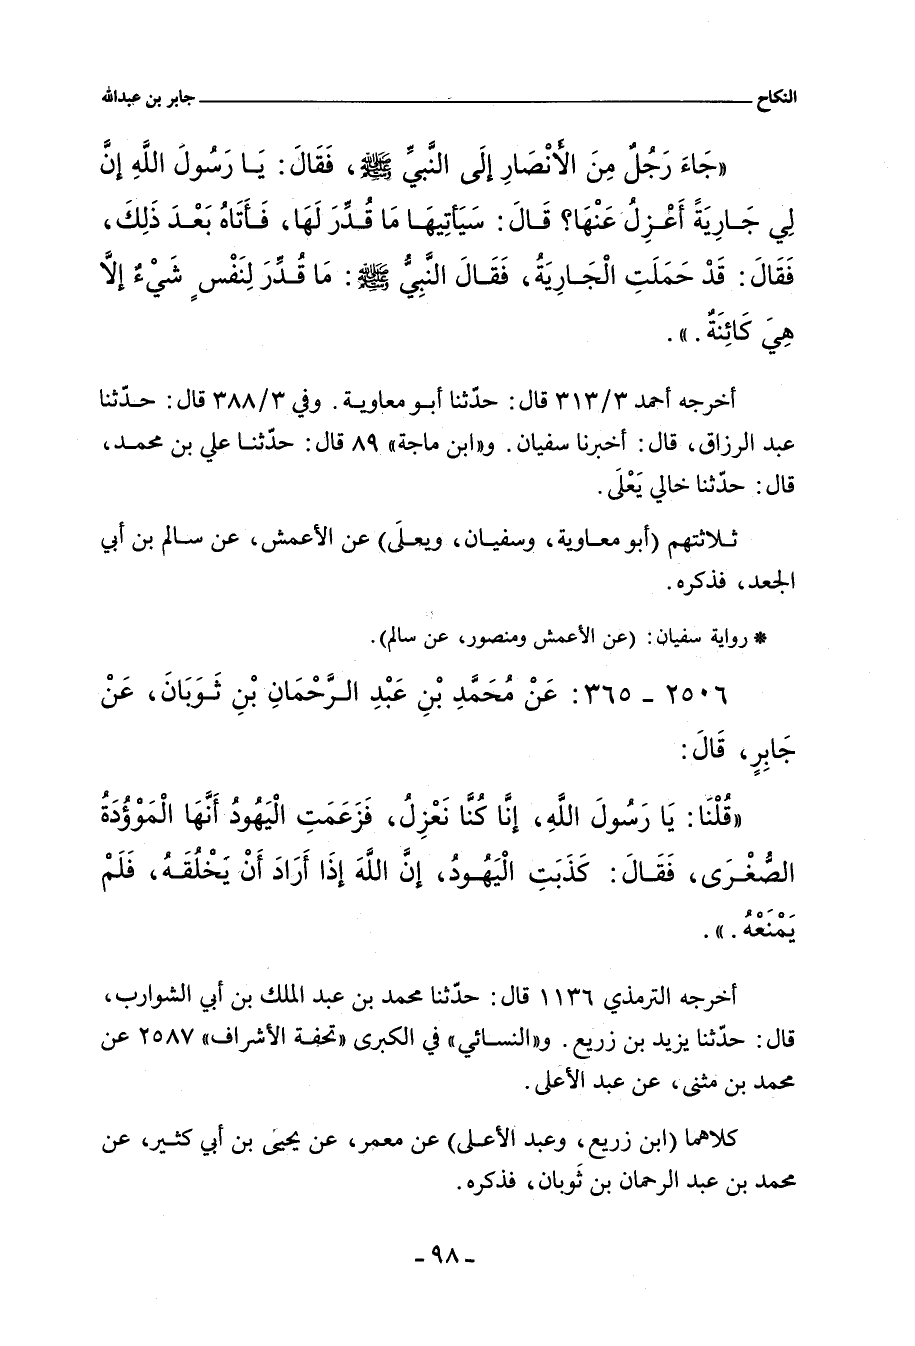 النكاح ــــــــــ جابر بن عبدالله
«جَاءَ رَجُلٌ مِنَ الأَنْصَارِ إِلَى النَّبِيِّ ﷺ، فَقَالَ: يَا رَسُولَ اللَّهِ إِنَّ
لِي جَارِيَةً أَعْزِلُ عَنْهَا؟ قَالَ: سَيَأْتِيهَا مَا قُدِّرَ لَهَا، فَأَتَاهُ بَعْدَ ذَلِكَ،
فَقَالَ: قَدْ حَمَلَتِ الْجَارِيَةُ، فَقَالَ النَّبِيُّ ﷺ: مَا قُدِّرَ لِنَفْسٍ شَيْءٌ إِلَّا
هِيَ كَائِنَةٌ.».
أخرجه أحمد ٣١٣/٣ قال: حدّثنا أبو معاوية. وفي ٣٨٨/٣ قال: حدّثنا
عبد الرزاق، قال: أخبرنا سفيان. و«ابن ماجة» ٨٩ قال: حدّثنا علي بن محمد،
قال: حدّثنا خالي يَعْلَى.
ثلاثتهم (أبو معاوية، وسفيان، ويعلَى) عن الأعمش، عن سالم بن أبي
الجعد، فذكره.
* رواية سفيان: (عن الأعمش ومنصور، عن سالم).
٢٥٠٦ - ٣٦٥: عَنْ مُحَمَّدِ بْنِ عَبْدِ الرَّحْمَانِ بْنِ ثَوْبَانَ، عَنْ
جَابِرٍ، قَالَ:
«قُلْنَا: يَا رَسُولَ اللَّهِ، إِنَّا كُنَّا نَعْزِلُ، فَزَعَمَتِ الْيَهُودُ أَنَّهَا الْمَوْؤُدَةُ
الصُّغْرَى، فَقَالَ: كَذَبَتِ الْيَهُودُ، إِنَّ اللَّهَ إِذَا أَرَادَ أَنْ يَخْلُقَهُ، فَلَمْ
يَمْنَعْهُ.».
أخرجه الترمذي ١١٣٦ قال: حدّثنا محمد بن عبد الملك بن أبي الشوارب،
قال: حدّثنا يزيد بن زريع. و«النسائي» في الكبرى «تحفة الأشراف» ٢٥٨٧ عن
محمد بن مثنى، عن عبد الأعلى.
كلاهما (ابن زريع، وعبد الأعلى) عن معمر، عن يحيَى بن أبي كثير، عن
محمد بن عبد الرحمان بن ثَوبان، فذكره.
- ٩٨ -